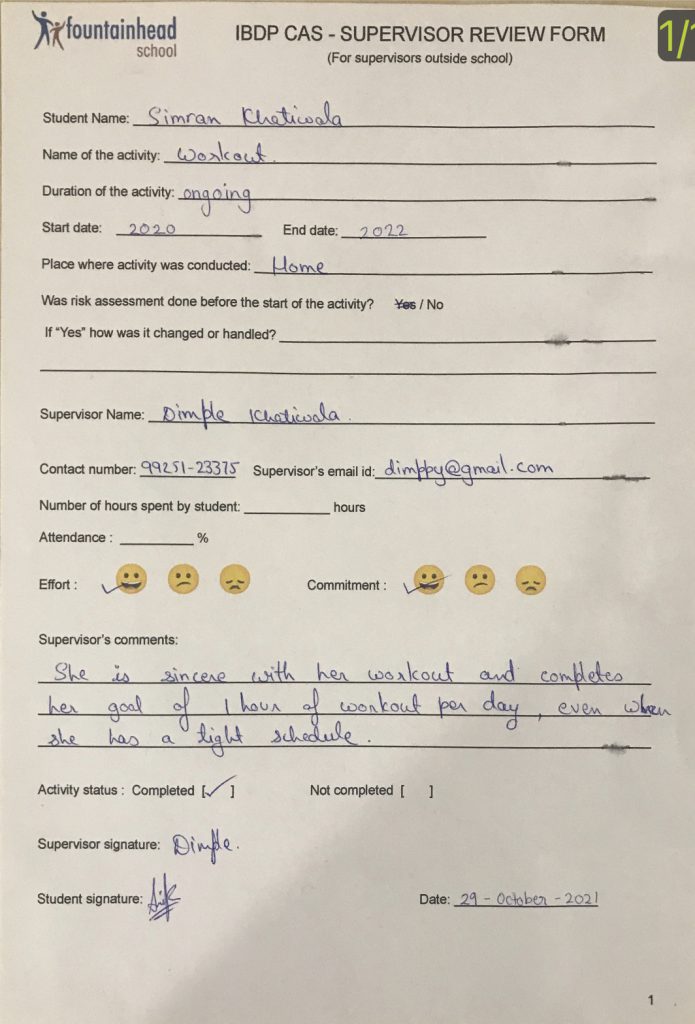 fountainhead
school
IBDP CAS - SUPERVISOR REVIEW FORM
(For supervisors outside school)
1/1
Student Name: Simran Khatiwala
Name of the activity: Workout.
Duration of the activity: ongoing
Start date: 2020 End date: 2022
Place where activity was conducted: Home
Was risk assessment done before the start of the activity? Yes / No
If "Yes" how was it changed or handled?
Supervisor Name: Dimple Khatiwala.
Contact number: 99251-23375 Supervisor's email id: dimppy@gmail.com
Number of hours spent by student: ________ hours
Attendance : ________ %
Effort : Commitment :
Supervisor's comments:
She is sincere with her workout and completes
her goal of 1 hour of workout per day, even when
she has a tight schedule.
Activity status : Completed [✓] Not completed [ ]
Supervisor signature: Dimple.
Student signature:
Date: 29 - October - 2021
1